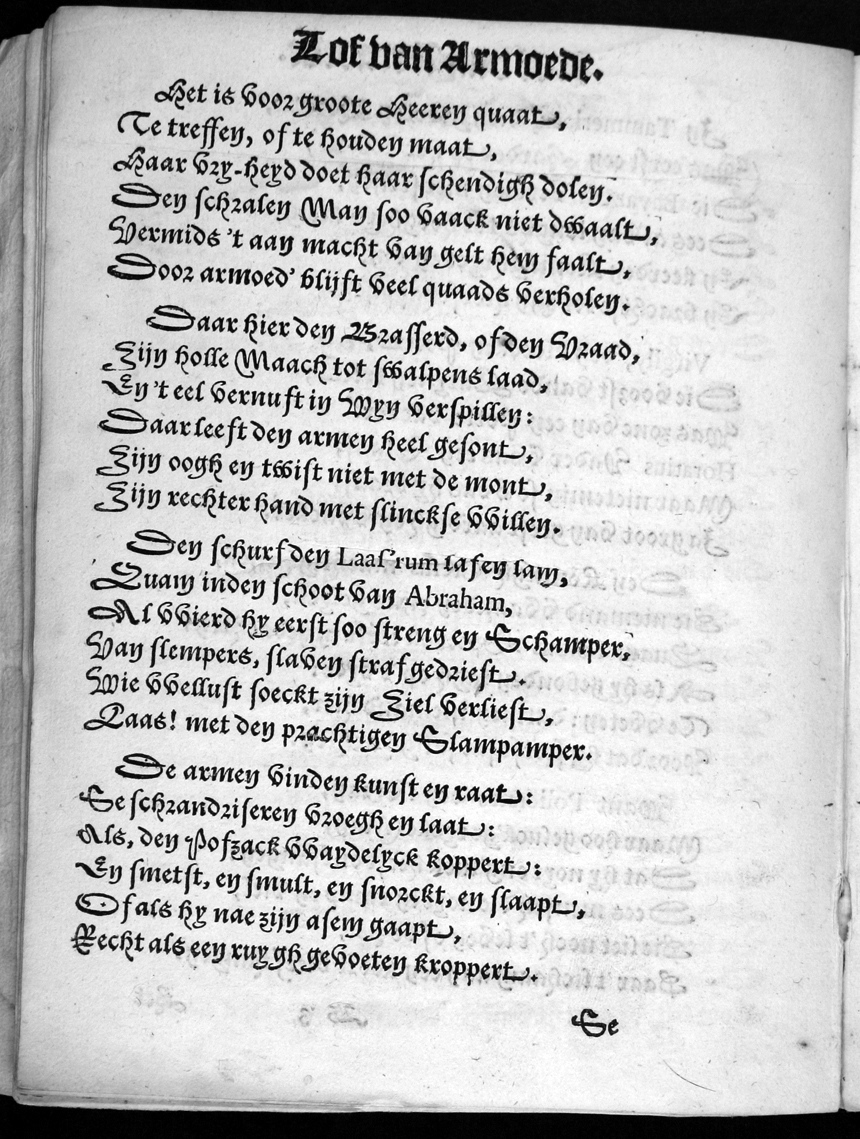 Lof van Armoede.
Het is voor groote Heeren quaat,
Te treffen, of te houden maat,
Haar vry-heyd doet haar schendigh dolen.
Den schralen Man soo vaack niet dwaalt,
Vermids 't aan macht van gelt hem faalt,
Door armoed' blijft veel quaads verholen.
Daar hier den Brasserd, of den Vraad,
Zijn holle Maach tot swalpens laad,
En 't eel vernuft in Wyn verspillen:
Daar leeft den armen heel gesont,
Zijn oogh en twist niet met de mont,
Zijn rechter hand met slinckse vvillen.
Den schurfden Laas'rum lasen lam,
Quam inden schoot van Abraham,
Al vvierd hy eerst soo streng en Schamper,
Van slempers, slaven straf gedriest.
Wie vvellust soeckt zijn Ziel verliest,
Laas! met den prachtigen Slampamper.
De armen vinden kunst en raat:
Se schrandriseren vroegh en laat:
Als, den Pofzack vvaydelyck koppert:
En smetst, en smult, en snorckt, en slaapt,
Of als hy nae zijn asem gaapt,
Recht als een ruygh gevoeten kroppert.
Se